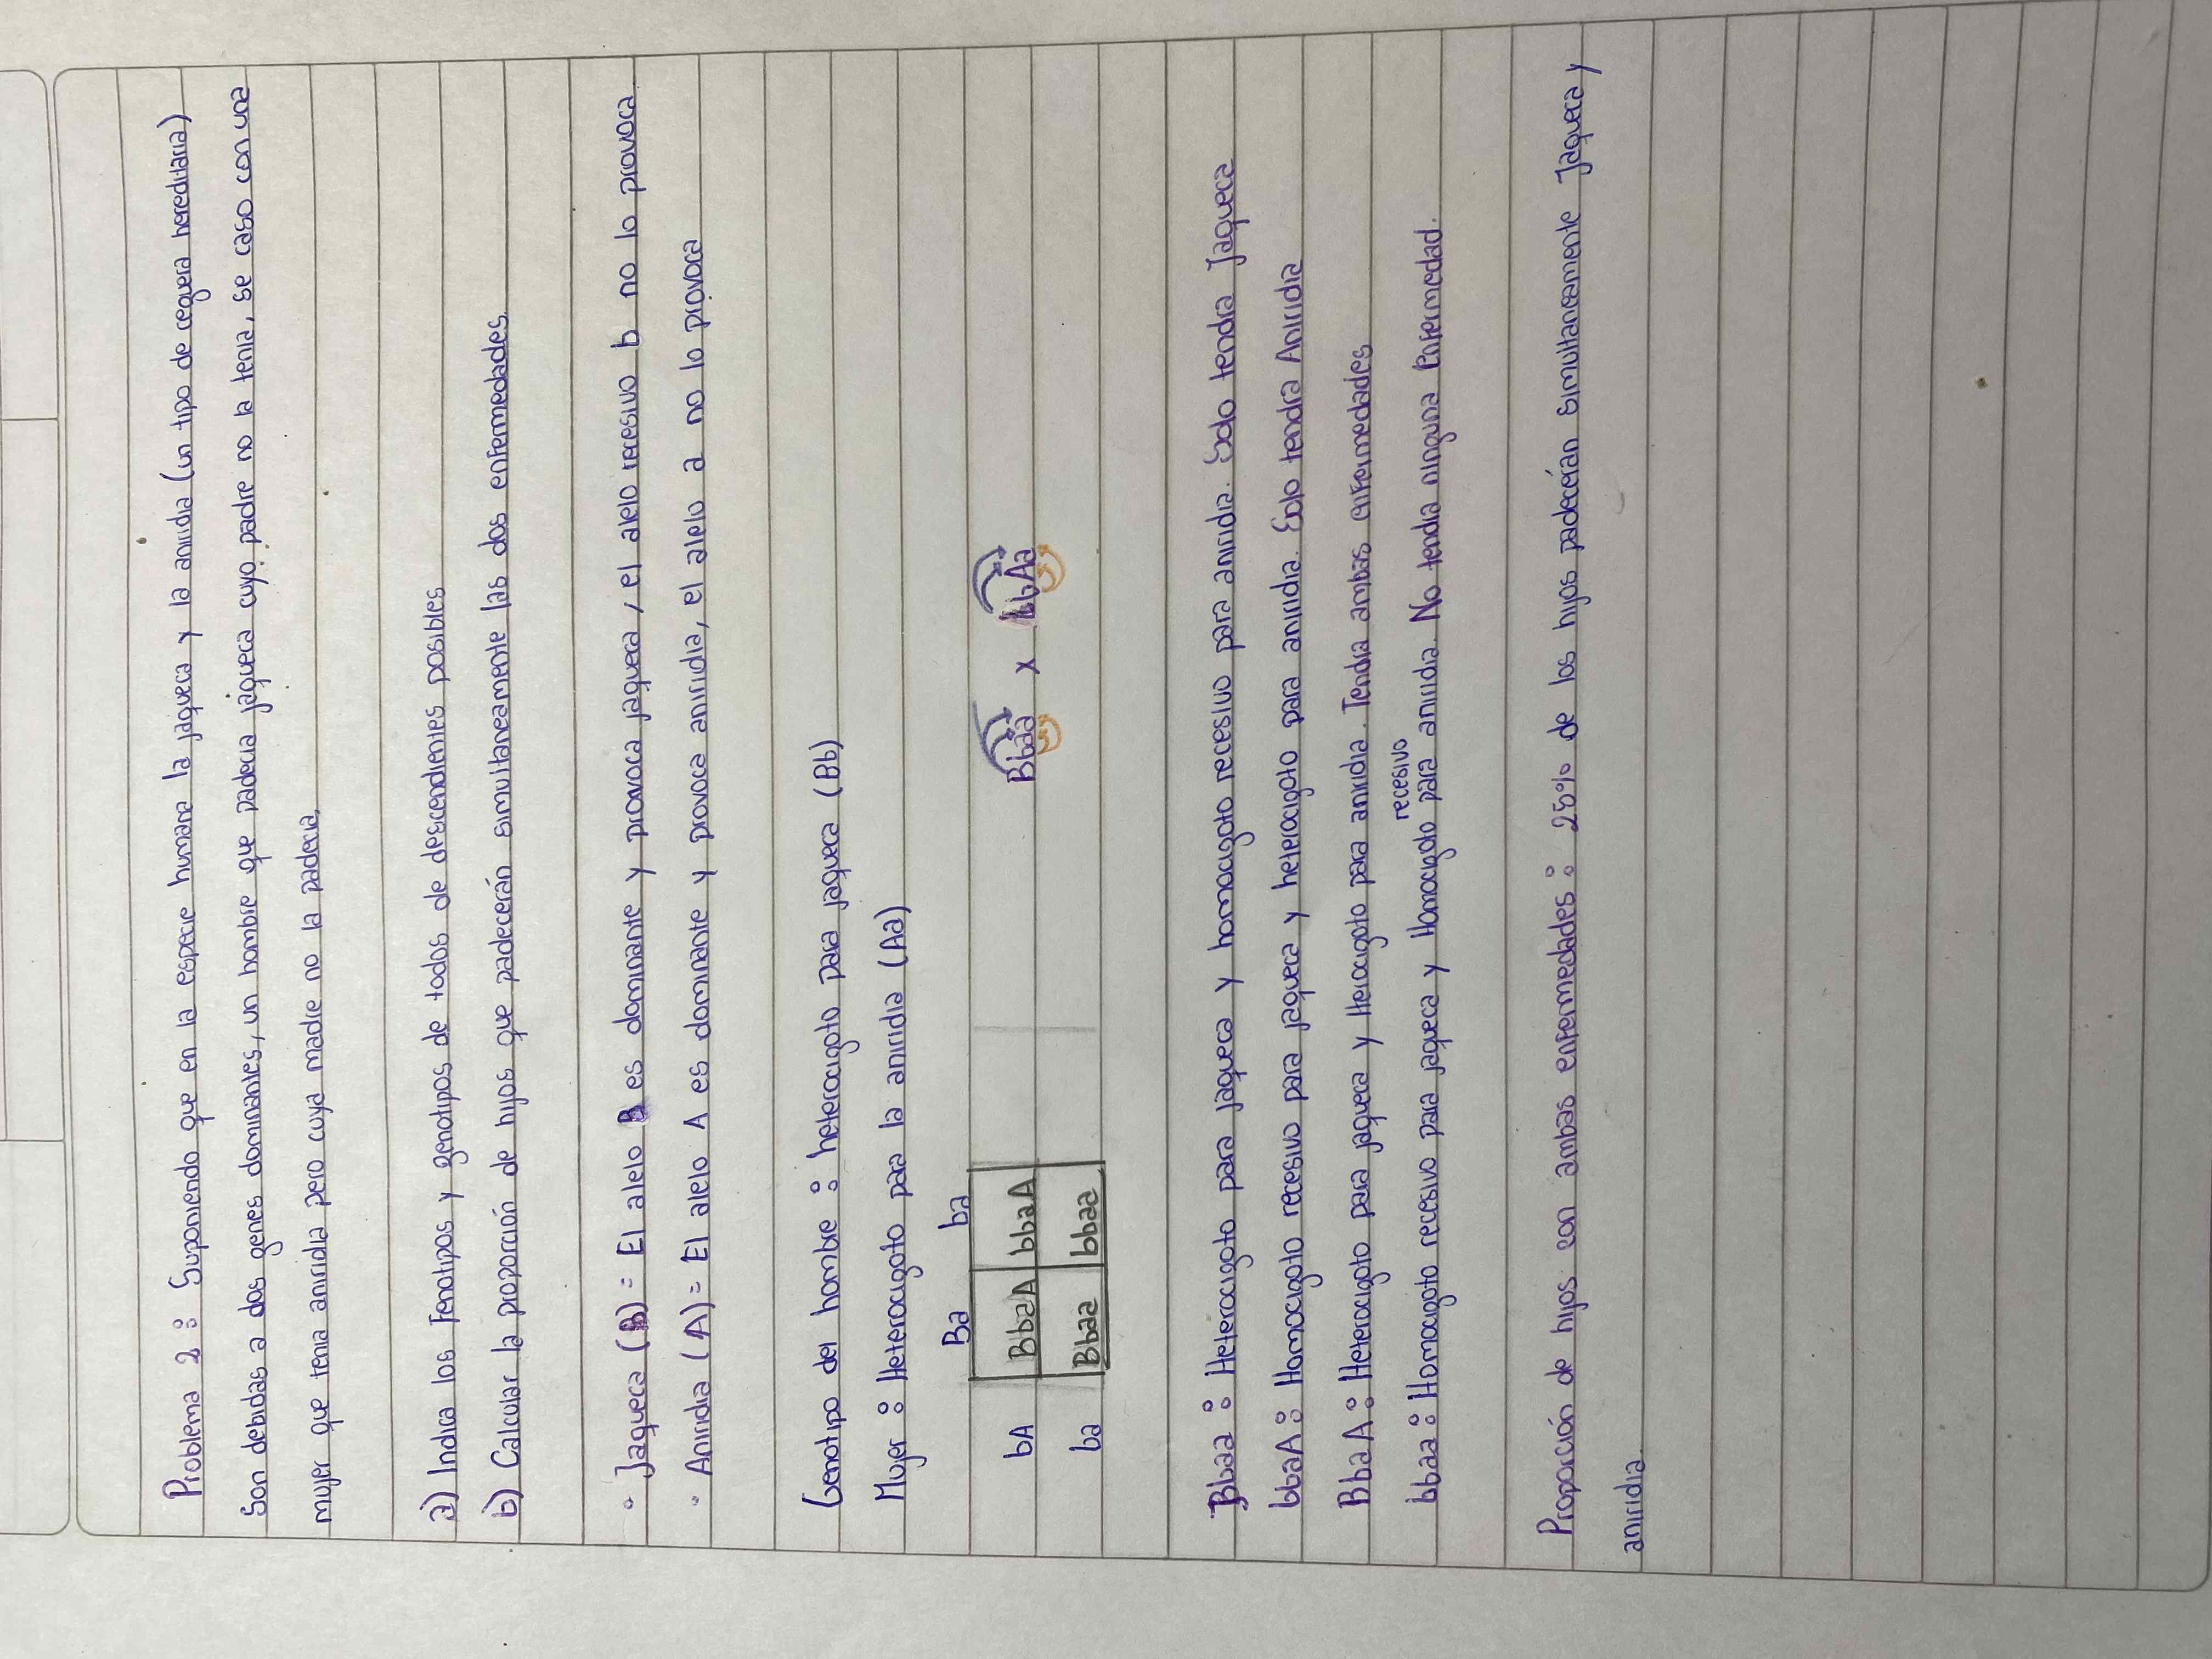 Problema 2 : Suponiendo que en la especie humana la jaqueca y la aniridia (un tipo de ceguera hereditaria)
son debidas a dos genes dominantes, un hombre que padece jaqueca cuyo padre no la tenía, se caso con una
mujer que tenia aniridia pero cuya madre no la padecia.
a) Indica los fenotipos y genotipos de todos de descendientes posibles
b) Calcular la proporción de hijos que padecerán simultáneamente las dos enfermedades
• Jaqueca (B) = El alelo B es dominante y provoca jaqueca, el alelo recesivo b no lo provoca
• Aniridia (A) = El alelo A es dominante y provoca aniridia, el alelo a no lo provoca
Genotipo del hombre : heterocigoto para jaqueca (Bb)
Mujer : Heterocigoto para la aniridia (Aa)
Ba ba
bA BbaA bbaA Bbaa x bbAa
ba Bbaa bbaa
Bbaa : Heterocigoto para jaqueca y homocigoto recesivo para aniridia. Solo tendra Jaqueca
bbaA : Homocigoto recesivo para jaqueca y heterocigoto para aniridia. Solo tendra Aniridia
BbaA : Heterocigoto para jaqueca y Heterocigoto para aniridia. Tendria ambas enfermedades
recesivo
bbaa : Homocigoto recesivo para jaqueca y Homocigoto para aniridia. No tendria ninguna enfermedad.
Proporción de hijos con ambas enfermedades : 25% de los hijos padecerán simultaneamente Jaqueca y
aniridia.